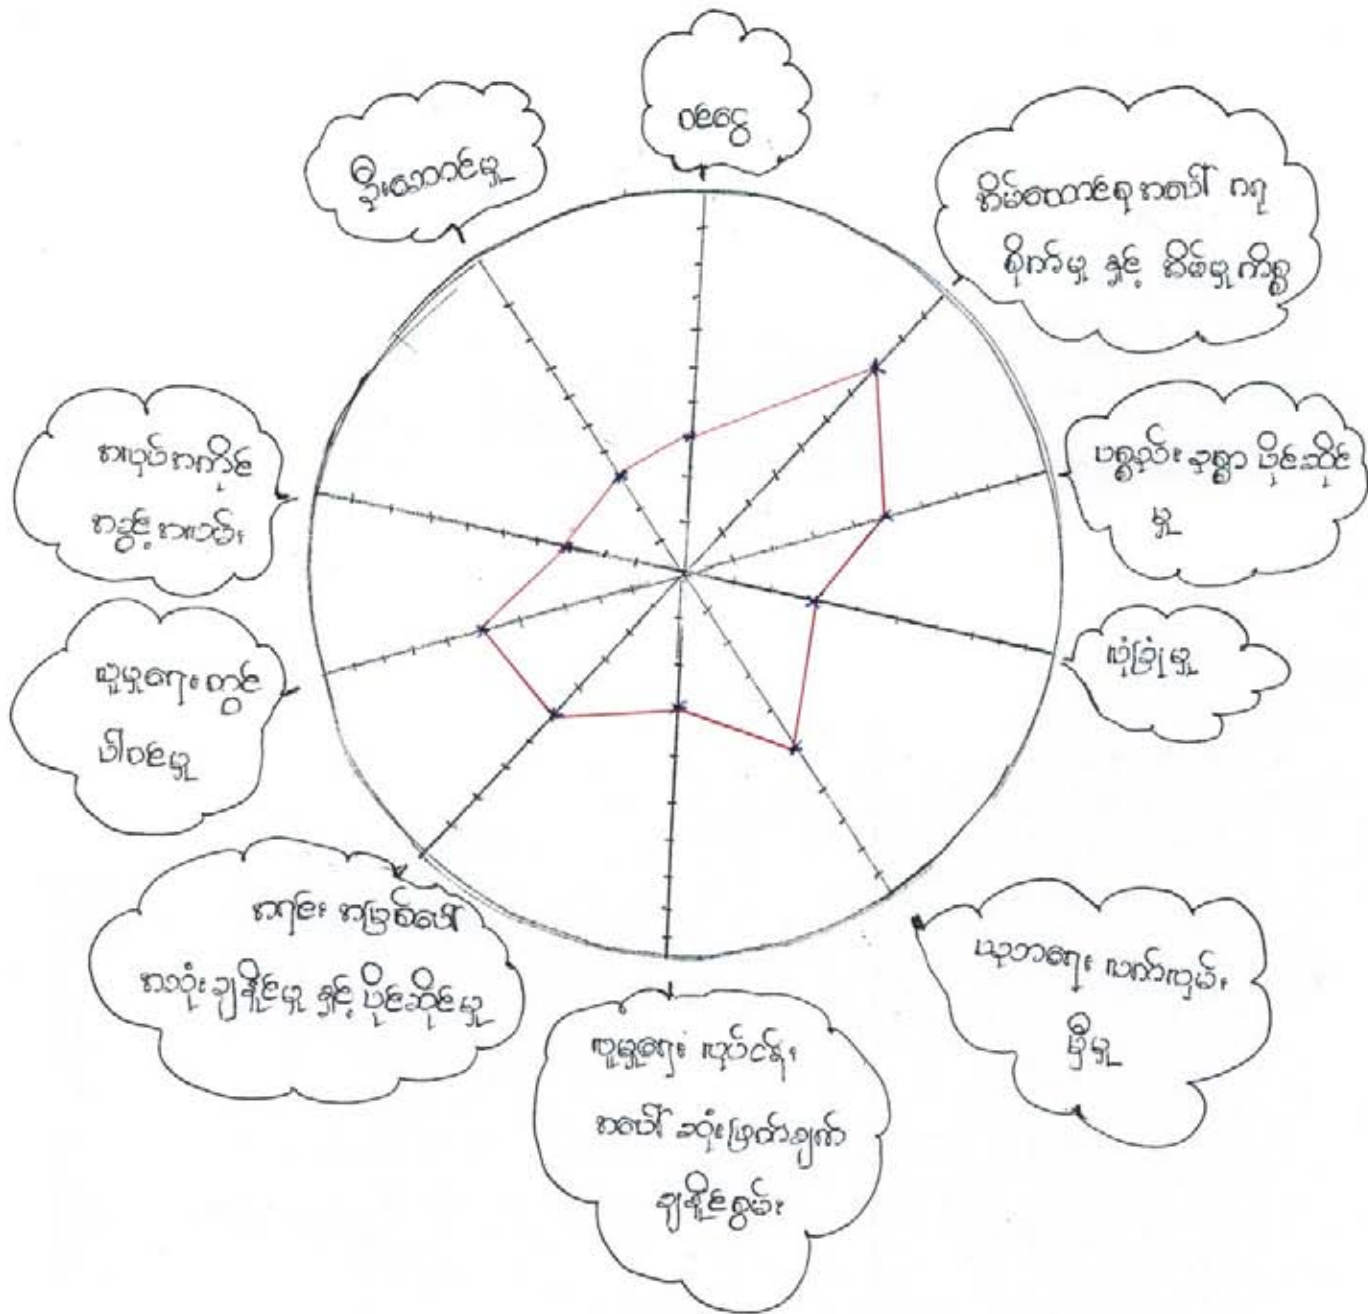 ဝင်ငွေ
ဦးဆောင်မှု
အိမ်ထောင်စု အပေါ် ဂရု
စိုက်မှု နှင့် အိမ်မှုကိစ္စ
ပစ္စည်း ဥစ္စာ ပိုင်ဆိုင်
မှု
လုံခြုံမှု
ယုဘရေး လက်လှမ်း
မှီမှု
လူမှုရေး လုပ်ငန်း
အပေါ် ဆုံးဖြတ်ချက်
ချနိုင်စွမ်း
အရင်း အမြစ်ပေါ်
အသုံးချနိုင်မှု နှင့် ပိုင်ဆိုင်မှု
လူမှုရေး တွင်
ပါဝင်မှု
အလုပ်အကိုင်
အခွင့်အလမ်း